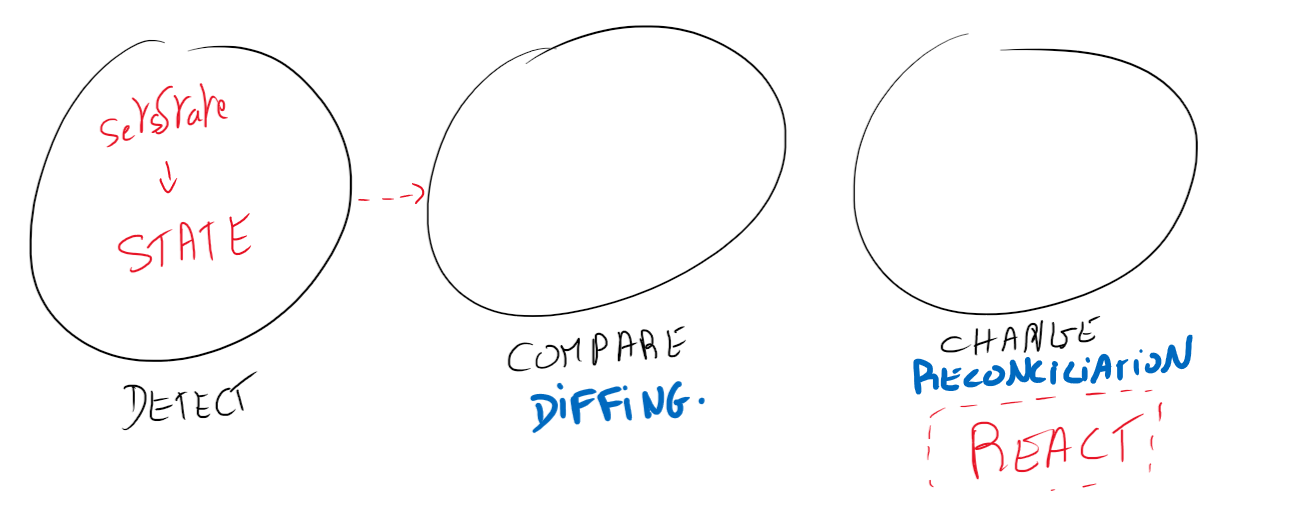 setState
STATE
DETECT
COMPARE
DiFFiNG.
CHANGE
RECONCiLiATiON
REACT